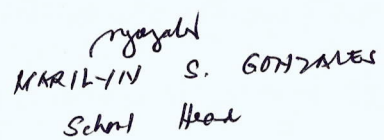 MARILYN S. GONZALES
School Head